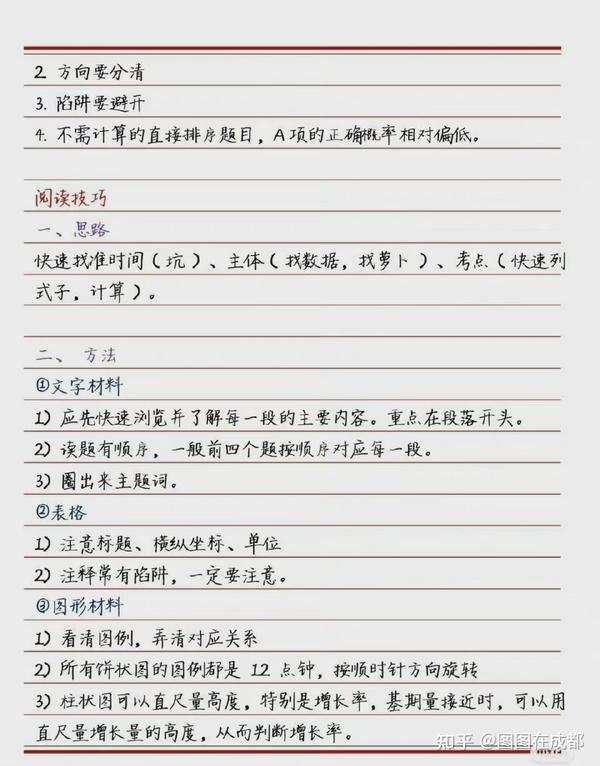 2. 方向要分清
3. 陷阱要避开
4. 不需计算的直接排序题目，A项的正确概率相对偏低。
阅读技巧
一、思路
快速找准时间（坑）、主体（找数据，找萝卜）、考点（快速列
式子，计算）。
二、方法
①文字材料
1）应先快速浏览并了解每一段的主要内容。重点在段落开头。
2）读题有顺序，一般前四个题按顺序对应每一段。
3）圈出来主题词。
②表格
1）注意标题、横纵坐标、单位
2）注释常有陷阱，一定要注意。
③图形材料
1）看清图例，弄清对应关系
2）所有饼状图的图例都是 12 点钟，按顺时针方向旋转
3）柱状图可以直尺量高度，特别是增长率，基期量接近时，可以用
直尺量增长量的高度，从而判断增长率。
知乎 @图图在成都